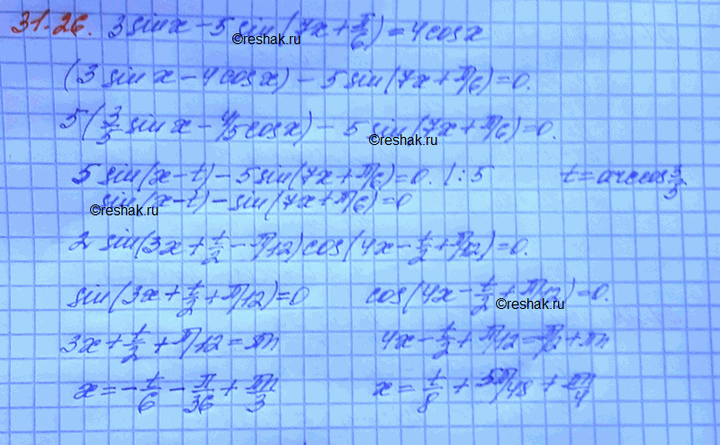 31.26. 3 sin x - 5 sin(7x + π/6) = 4 cos x
©reshak.ru
(3 sin x - 4 cos x) - 5 sin(7x + π/6) = 0.
5(3/5 sin x - 4/5 cos x) - 5 sin(7x + π/6) = 0.
©reshak.ru
5 sin(x-t) - 5 sin(7x + π/6) = 0. |:5 t = arccos 3/5
sin(x-t) - sin(7x + π/6) = 0
©reshak.ru
2 sin(3x + t/2 - π/12) cos(4x - t/2 + π/12) = 0.
sin(3x + t/2 + π/12) = 0 cos(4x - t/2 + π/12) = 0.
©reshak.ru
3x + t/2 + π/12 = πn 4x - t/2 + π/12 = π/2 + πn
x = - t/6 - π/36 + πn/3 x = t/8 + 5π/48 + πn/4